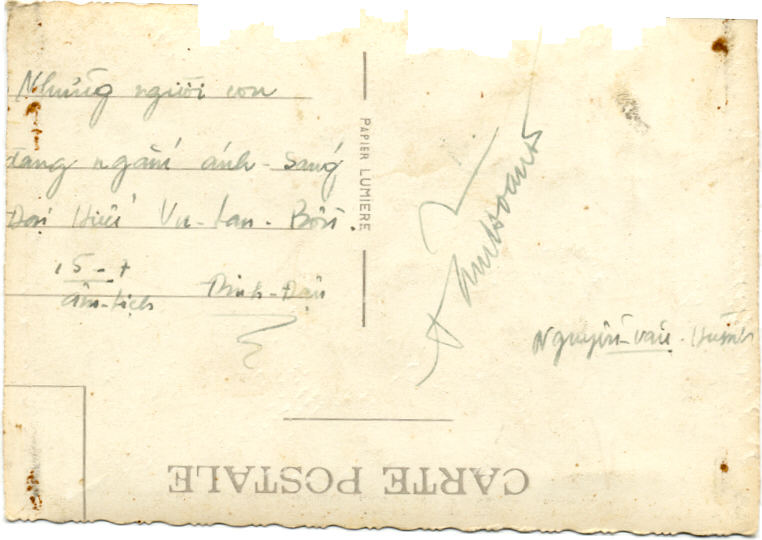 Những người con
đang ngắm ánh-sáng
Vu-lan-Bồn.
15-7
âm-lịch Đinh-Dậu
PAPIER LUMIERE
Nguyễn-văn-
CARTE POSTALE